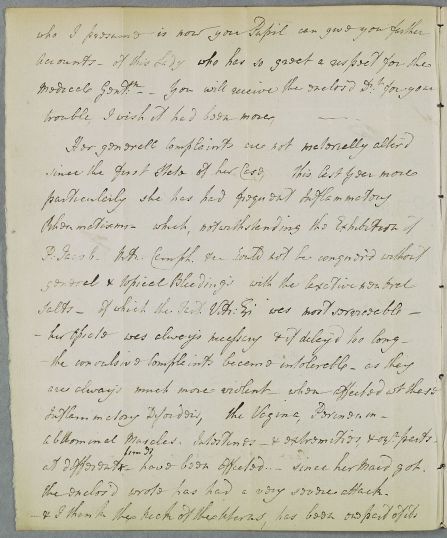 who I presume is now your Pupil can give you further
accounts - of this Lady who has so great a respect for the
Medical Gentn - - You will receive the enclosd Dt. for your
trouble, I wish it had been more,
Her generall Complaints are not materially alterd
since the first State of her Case, this last year more
particularly she has had frequent Inflammatory
Rheumatisms which, notwithstanding the Exhibition of
P. Jacob. Nitr. Camph. &c could not be conquerd without
general & topical Bleedings with the laxative neutral
Salts - of which the was most serviceable -
- her Opiate was always necessary & if delayd too long -
the convulsive Complaints became intolerable - as they
are always much more violent - when affected wt these
Inflammatory Disorders, the Vagina, Perineum -
abdominal Muscles. Intestines - & extremities, & parts -
at different times have been affected - - since her Maid got
the enclosd wrote has had a very severe attack -
- & I think the Neck of the Uterus, has been one part of its